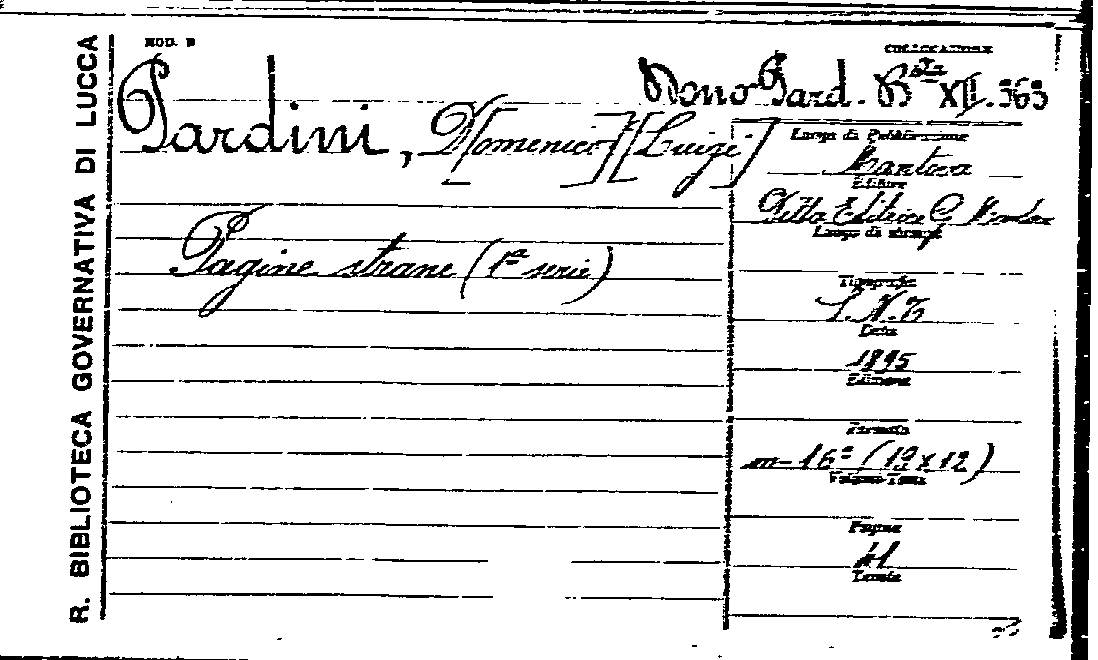 R. BIBLIOTECA GOVERNATIVA DI LUCCA
MOD. B
COLLOCAZIONE
Dono Pard. Bta XII.363
Pardini, D[omenico] [Luigi]
Pagine strane (1ª serie)
Luogo di Pubblicazione
Mantova
Editore
Ditta Editrice G.
Luogo di stampa
Tipografia
S.N.T
Data
1895
Edizione
Formato
in-16º (19x12)
Volume-Tomo
Pagine
41
Tavole